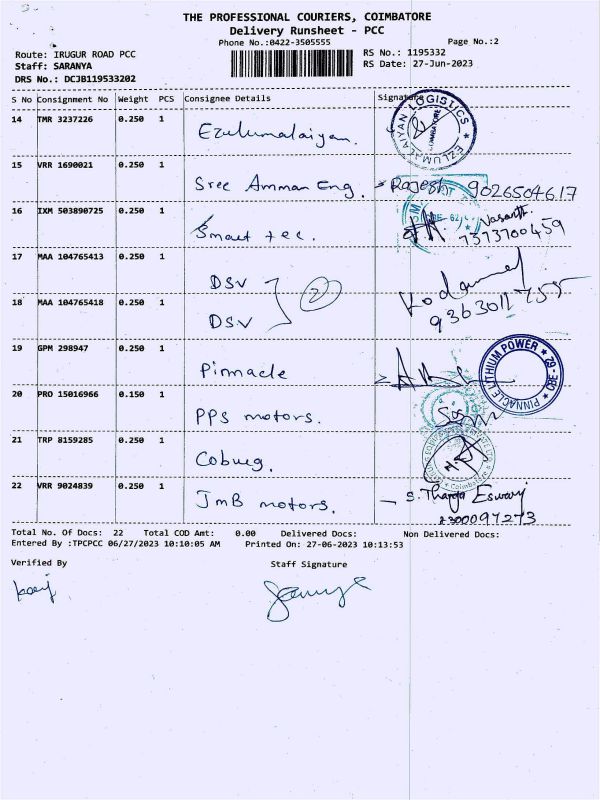 THE PROFESSIONAL COURIERS, COIMBATORE
Delivery Runsheet - PCC
Phone No.:0422-3505555 Page No.:2
Route: IRUGUR ROAD PCC RS No.: 1195332
Staff: SARANYA RS Date: 27-Jun-2023
DRS No.: DCJB119533202
S No Consignment No Weight PCS Consignee Details Signature
14 TMR 3237226 0.250 1 Ezulumalaiyan. EZULUMALAIYAN LOGISTICS COIMBATORE
15 VRR 1690021 0.250 1 Sree Amman Eng. Rajesh 9026504617
16 IXM 503890725 0.250 1 Smart tec. Vasanth. 7373700459
17 MAA 104765413 0.250 1 DSV 2
18 MAA 104765418 0.250 1 DSV 9363011755
19 GPM 298947 0.250 1 Pinnacle PINNACLE LITHIUM POWER CBE-62
20 PRO 15016966 0.150 1 PPS motors.
21 TRP 8159285 0.250 1 Cobueg. Coimbatore
22 VRR 9024839 0.250 1 JmB motors. S. Tharga Eswary 2300097273
Total No. Of Docs: 22 Total COD Amt: 0.00 Delivered Docs: Non Delivered Docs:
Entered By :TPCPCC 06/27/2023 10:10:05 AM Printed On: 27-06-2023 10:13:53
Verified By Staff Signature